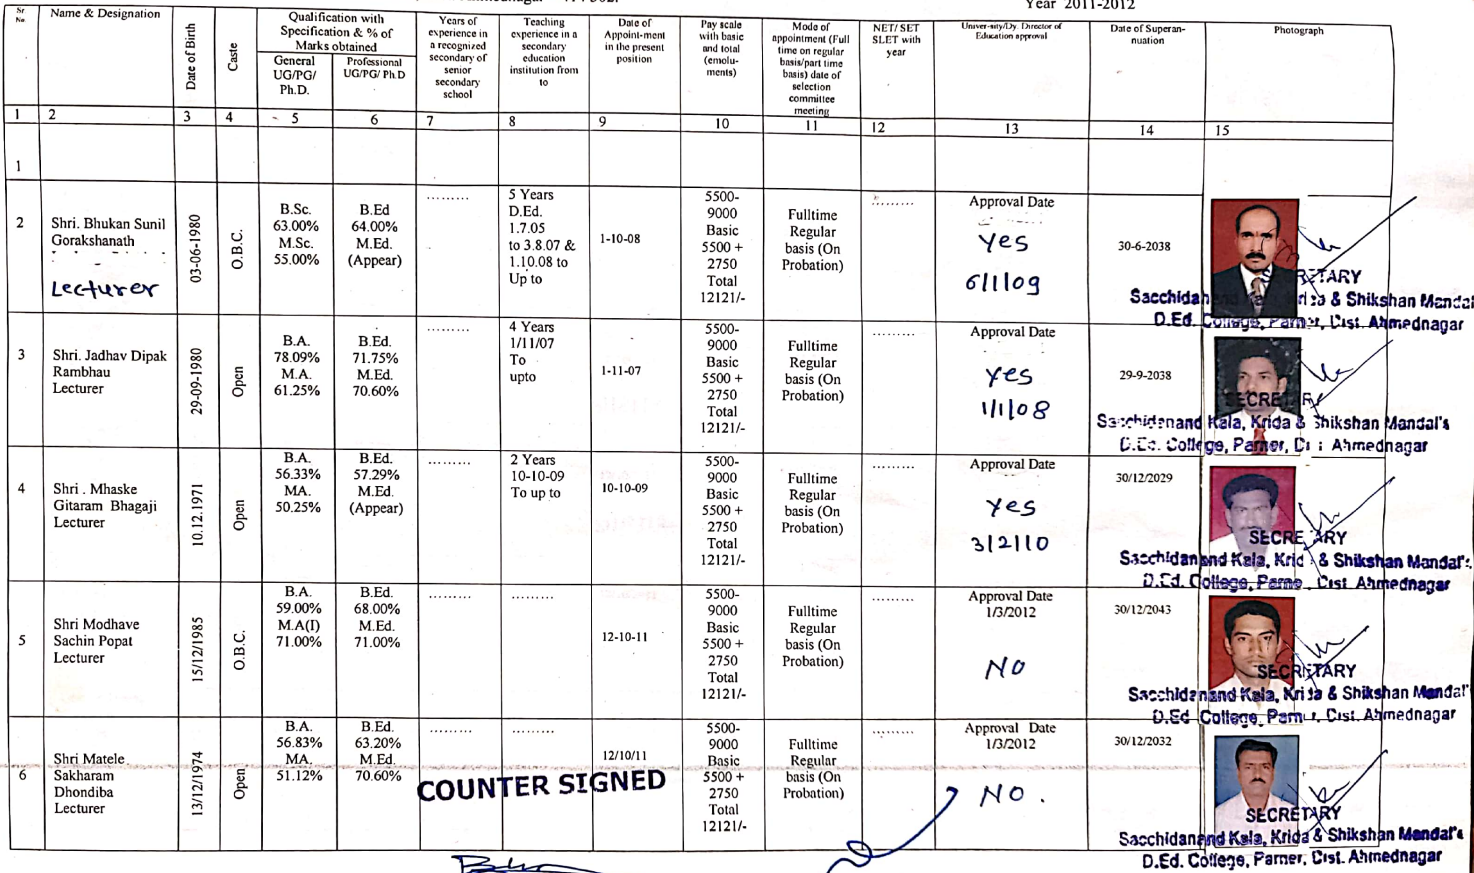 Year 2011-2012
Sr No
Name & Designation
Date of Birth
Caste
Qualification with Specification & % of Marks obtained
General UG/PG/ Ph.D.
Professional UG/PG/ Ph.D
Years of experience in a recognized secondary of senior secondary school
Teaching experience in a secondary education institution from to
Date of Appoint-ment in the present position
Pay scale with basic and total (emolu-ments)
Mode of appointment (Full time on regular basis/part time basis) date of selection committee meeting
NET/ SET SLET with year
University/Dy. Director of Education approval
Date of Superan-nuation
Photograph
1 2 3 4 5 6 7 8 9 10 11 12 13 14 15
1
2
Shri. Bhukan Sunil Gorakshanath
Lecturer
03-06-1980
O.B.C.
B.Sc. 63.00% M.Sc. 55.00%
B.Ed 64.00% M.Ed. (Appear)
.........
5 Years D.Ed. 1.7.05 to 3.8.07 & 1.10.08 to Up to
1-10-08
5500-9000 Basic 5500 + 2750 Total 12121/-
Fulltime Regular basis (On Probation)
.........
Approval Date
Yes
6/1/09
30-6-2038
SECRETARY
Sacchidanand Kala, Krida & Shikshan Mandal
D.Ed. College, Parner, Dist. Ahmednagar
3
Shri. Jadhav Dipak Rambhau Lecturer
29-09-1980
Open
B.A. 78.09% M.A. 61.25%
B.Ed. 71.75% M.Ed. 70.60%
.........
4 Years 1/11/07 To upto
1-11-07
5500-9000 Basic 5500 + 2750 Total 12121/-
Fulltime Regular basis (On Probation)
.........
Approval Date
yes
1/1/08
29-9-2038
SECRETARY
Sacchidanand Kala, Krida & Shikshan Mandal's
D.Ed. College, Parner, Dist Ahmednagar
4
Shri . Mhaske Gitaram Bhagaji Lecturer
10.12.1971
Open
B.A. 56.33% MA. 50.25%
B.Ed. 57.29% M.Ed. (Appear)
.........
2 Years 10-10-09 To up to
10-10-09
5500-9000 Basic 5500 + 2750 Total 12121/-
Fulltime Regular basis (On Probation)
.........
Approval Date
yes
3/2/10
30/12/2029
SECRETARY
Sacchidanand Kala, Krida & Shikshan Mandal's
D.Ed. College, Parner, Dist. Ahmednagar
5
Shri Modhave Sachin Popat Lecturer
15/12/1985
O.B.C.
B.A. 59.00% M.A(I) 71.00%
B.Ed. 68.00% M.Ed. 71.00%
.........
.........
12-10-11
5500-9000 Basic 5500 + 2750 Total 12121/-
Fulltime Regular basis (On Probation)
.........
Approval Date 1/3/2012
NO
30/12/2043
SECRETARY
Sacchidanand Kala, Krida & Shikshan Mandal'
D.Ed College, Parner, Dist. Ahmednagar
6
Shri Matele Sakharam Dhondiba Lecturer
13/12/1974
Open
B.A. 56.83% MA. 51.12%
B.Ed. 63.20% M.Ed. 70.60%
.........
.........
12/10/11
5500-9000 Basic 5500 + 2750 Total 12121/-
Fulltime Regular basis (On Probation)
.........
Approval Date 1/3/2012
NO.
30/12/2032
COUNTER SIGNED
SECRETARY
Sacchidanand Kala, Krida & Shikshan Mandal's
D.Ed. College, Parner, Dist. Ahmednagar